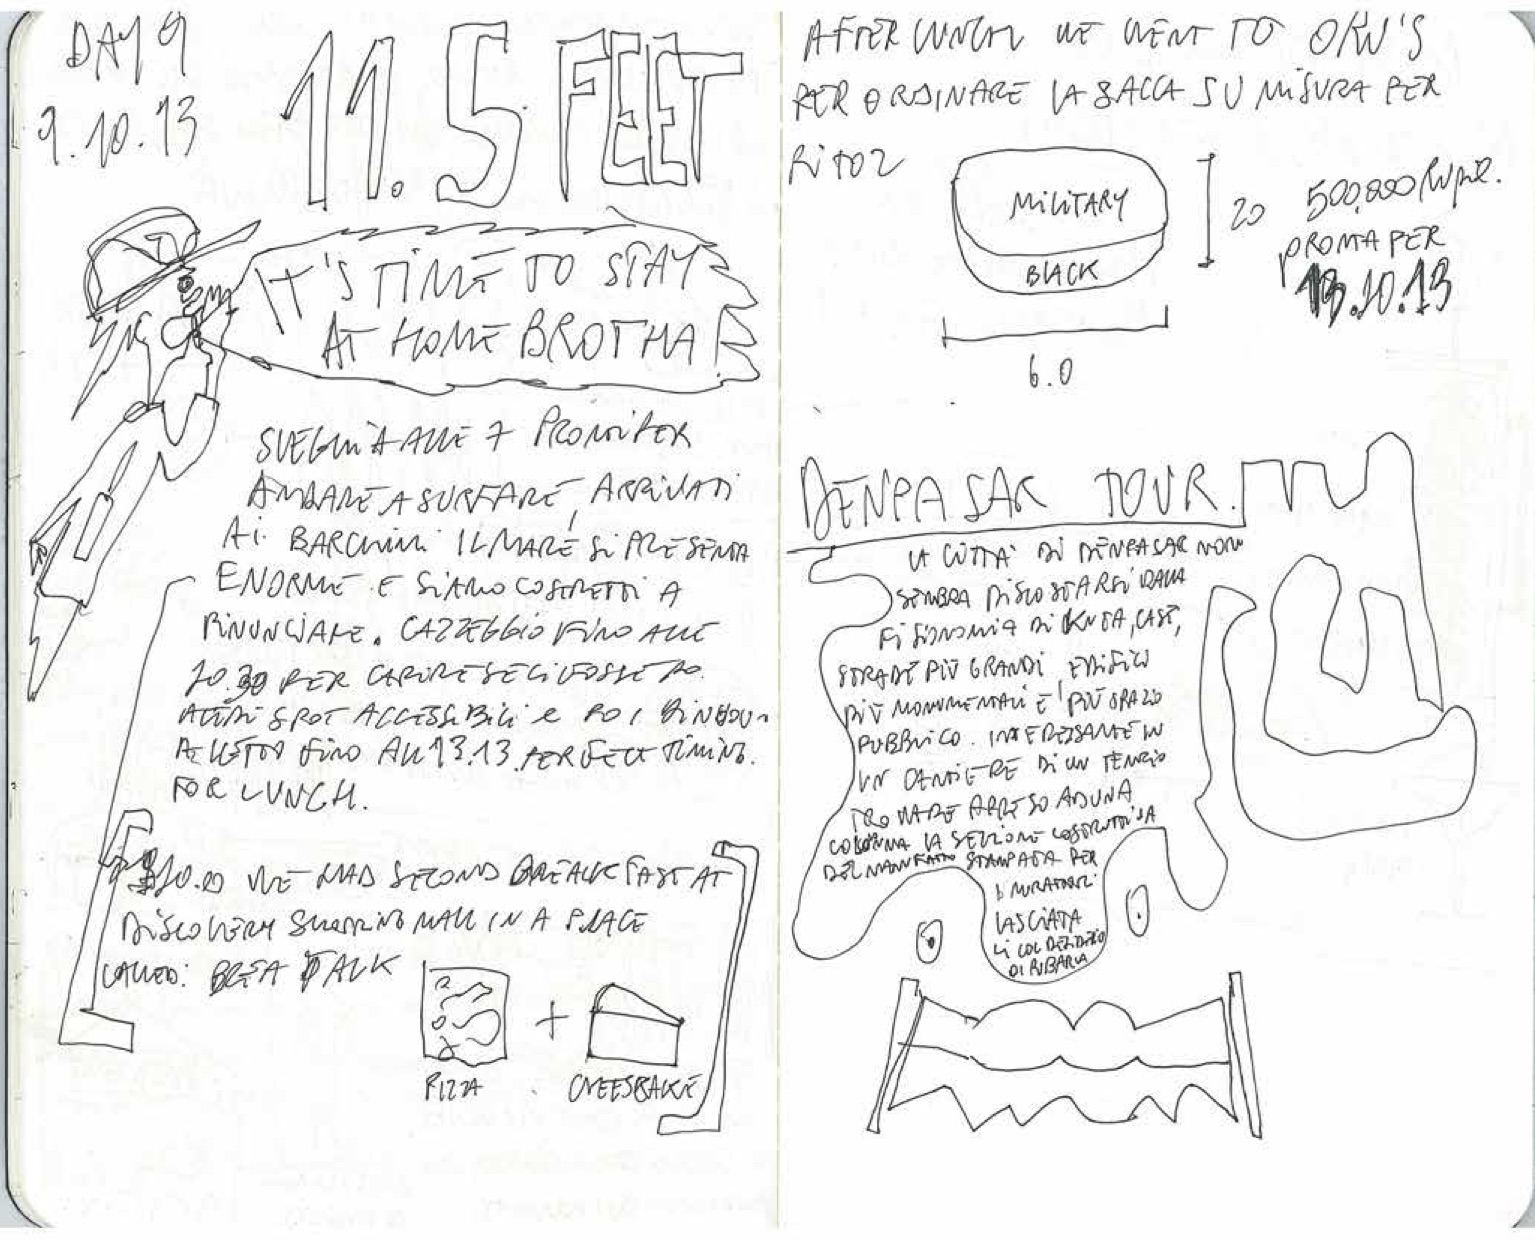 DAY 9
9.10.13
11.5 FEET
IT'S TIME TO STAY
AT HOME BROTHA!
SVEGLIA ALLE 7 PRONTI PER
ANDARE A SURFARE, ARRIVATI
AI BARCHINI IL MARE SI PRESENTA
ENORME E SIAMO COSTRETTI A
RINUNCIARE. CAZZEGGIO FINO ALLE
10.30 PER CAPIRE SE CI FOSSERO
ALTRI SPOT ACCESSIBILI E POI
FINO ALL 13.13 PERFECT TIMING
FOR LUNCH.
10.0 WE HAD SECOND BREAKFAST AT
DISCOVERY SHOPPING MALL IN A PLACE
CALLED: TALK
PIZZA + CHEESBAKE
AFTER LUNCH WE WENT TO OKU'S
PER ORDINARE LA SACCA SU MISURA PER
MILITARY
BLACK
20
6.0
500,000 RUPIE.
PRONTA PER
13.10.13
DENPASAR TOUR.
LA CITTA' DI DENPASAR NON
SEMBRA DISCOSTARSI DALLA
FISIONOMIA DI KUTA, CASE,
STRADE PIÙ GRANDI, EDIFICI
PIÙ MONUMENTALI E PIÙ SPAZIO
PUBBLICO. INTERESSANTE IN
UN CANTIERE DI UN TEMPIO
TROVARE APPESO AD UNA
COLONNA LA SEZIONE COSTRUTTIVA
DEL MANUFATTO STAMPATA PER
I MURATORI
LASCIATA
LI COL DESIDERIO
DI RUBARLA